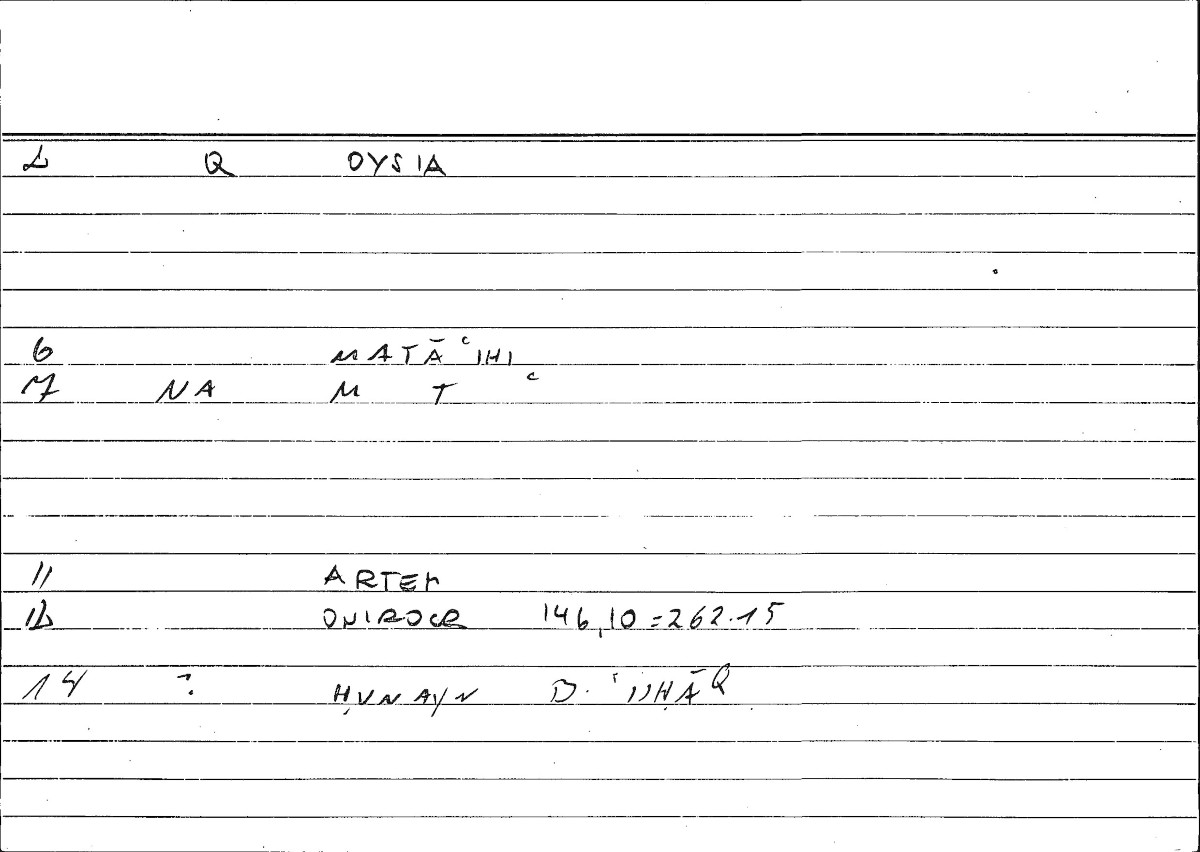 L Q OYSIA
6 MATĀʿIHI
7 NA M T ʿ
11 ARTEM
12 ONIROCR 146,10=262.15
14 ? ḤUNAYN B. ʾISḤĀQ